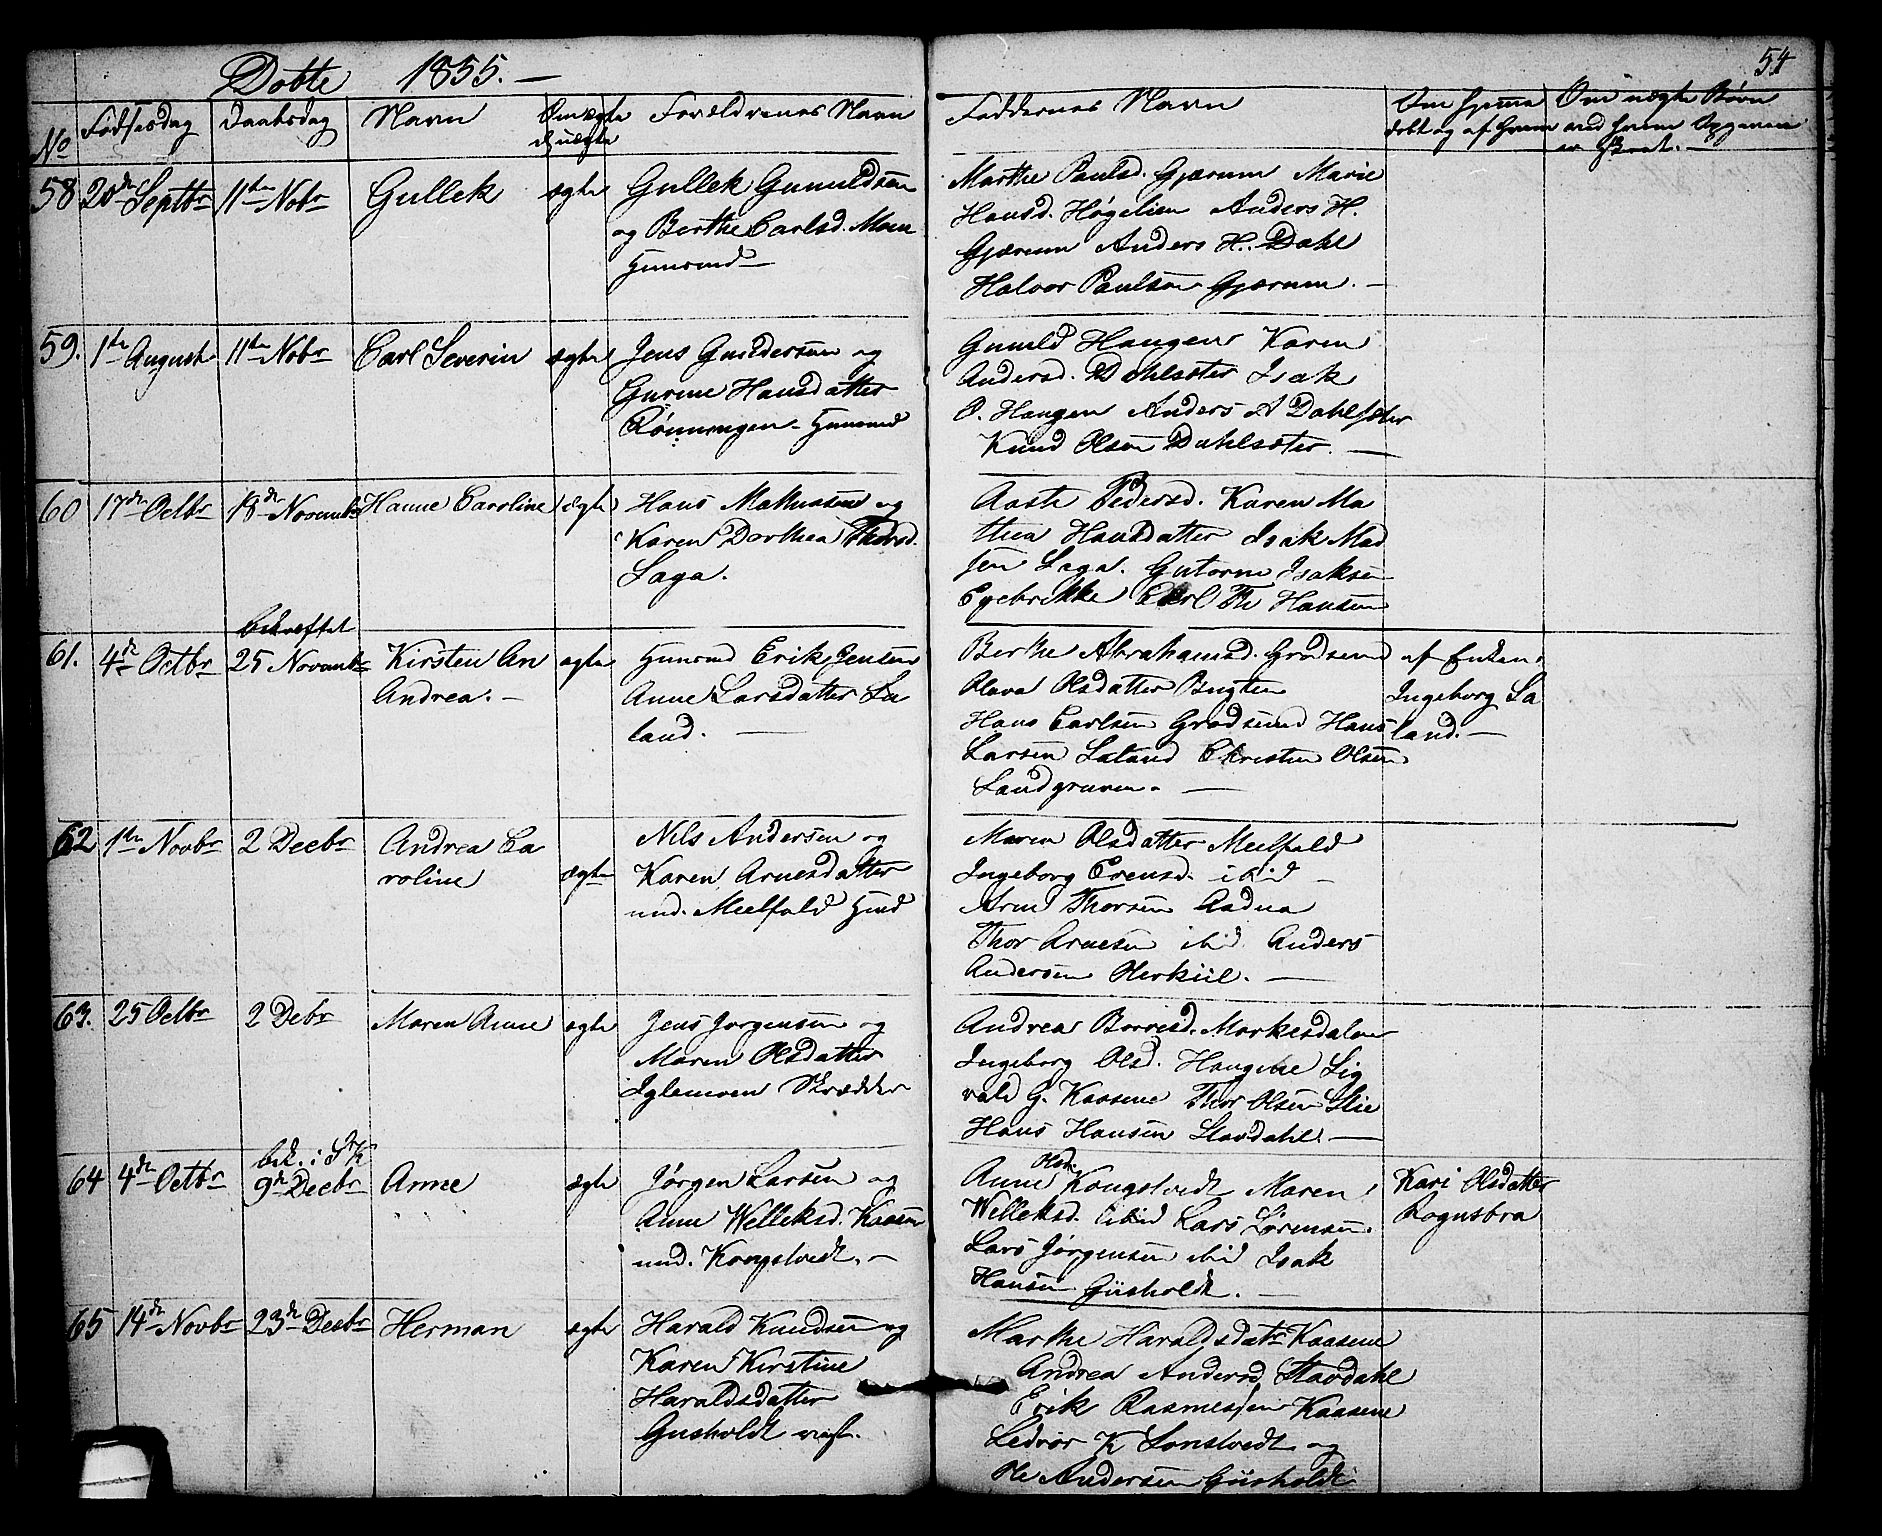 Døbte 1855. —
54
No Fødselsdag Daabsdag Navn Om ægte el. uægte Forældrenes Navn Faddernes Navn Om hjemmedøbt og af hvem Om uægte Børn
58 20de Septbr 11te Nobr Gullek ægte Gullek Gunuldsen
og Berthe Carlsd. Moen
Huusmd —
Marthe Paulsd. Gjærum Marie
Hansd. Høgelien Anders H.
Gjærum Anders H. Dahl
Halvor Paulsen Gjærum. —
59. 1te August 11te Nobr Carl Severin ægte Jens Gundersen og
Gurine Hansdatter
Rønningen Huusmd
Gunuld Haugen Karen
Andersd. Dahlsæter Isak
O. Haugen Anders A Dahlsæter
Knud Olsen Dahlsæter. —
60 17de Octbr 18de Novembr Hanne Caroline ægte Hans Mathiasen og
Karen Dorthea Thorsd.
Laga.
Aaste Pedersd. Karen Ma
thea Hansdatter Isak Mad
sen Laga. Gutorm Isaksen
Egebrække Carl Th Hansen
bekræftet
61. 4de Octbr 25 Novembr Kirsten An ægte Huusmd Erik Jensen
Andrea. — Anne Larsdatter La
land. —
Berthe Abrahamsd. Grødsund
Olava Olsdatter Bugten
Hans Carlsen Grødsund Hans
Larsen Laland Christen Olsen
Sandgraven. —
af Enken
Ingeborg La
land. —
62 1te Novbr 2 Decbr Andrea Ca
roline ægte Nils Andersen og
Karen Arnesdatter
und. Meelfald Hmd
Maren Olsdatter Meelfald
Ingeborg Evensd. ibid —
Arne Thorsen Aadna
Thor Arnesen ibid Anders
Andersen Herkiil. —
63. 25 Octbr 2 Debr Maren Anne ægte Jens Jørgensen og
Maren Olsdatter
Iglemoen Skrædder
Andrea Borresd. Morkesdalen
Ingeborg Olsd. Haugene Sig
vald G. Kaasene Thor Olsen Lie
Hans Hansen Stavdahl. —
bek. i SK
64 4de Octbr 9de Decbr Anne ægte Jørgen Larsen og
Anne Welleksd. Kaasen
und. Kongstvedt. —
Anne Olsd. Kongstvedt Maren
Welleksd. ibid Lars Sørensen
Lars Jørgensen ibid Isak
Hansen Giisholdt. —
Kari Olsdatter
Rognsbra
65 14de Novbr 23de Decbr Herman ægte Harald Knudsen og
Karen Kirstine
Haraldsdatter
Gusholdt
Marthe Haraldsdatr Kaasene
Andrea Andersd Stavdahl
Erik Rasmussen Kaasene
Ledvor K Lonstvedt og
Ole Andersen Giisholdt